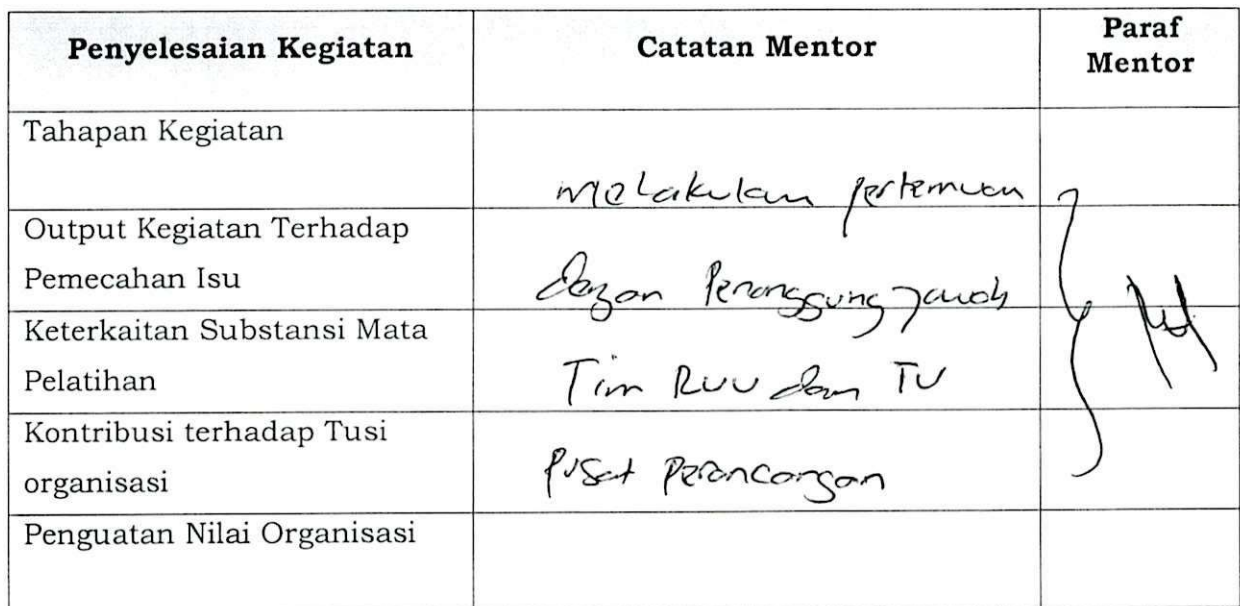 Penyelesaian Kegiatan
Catatan Mentor
Paraf
Mentor
Tahapan Kegiatan
melakukan pertemuan
Output Kegiatan Terhadap
Pemecahan Isu
dengan Penanggung Jawab
Keterkaitan Substansi Mata
Pelatihan
Tim RUU dan TU
Kontribusi terhadap Tusi
organisasi
Pusat Perancangan
Penguatan Nilai Organisasi